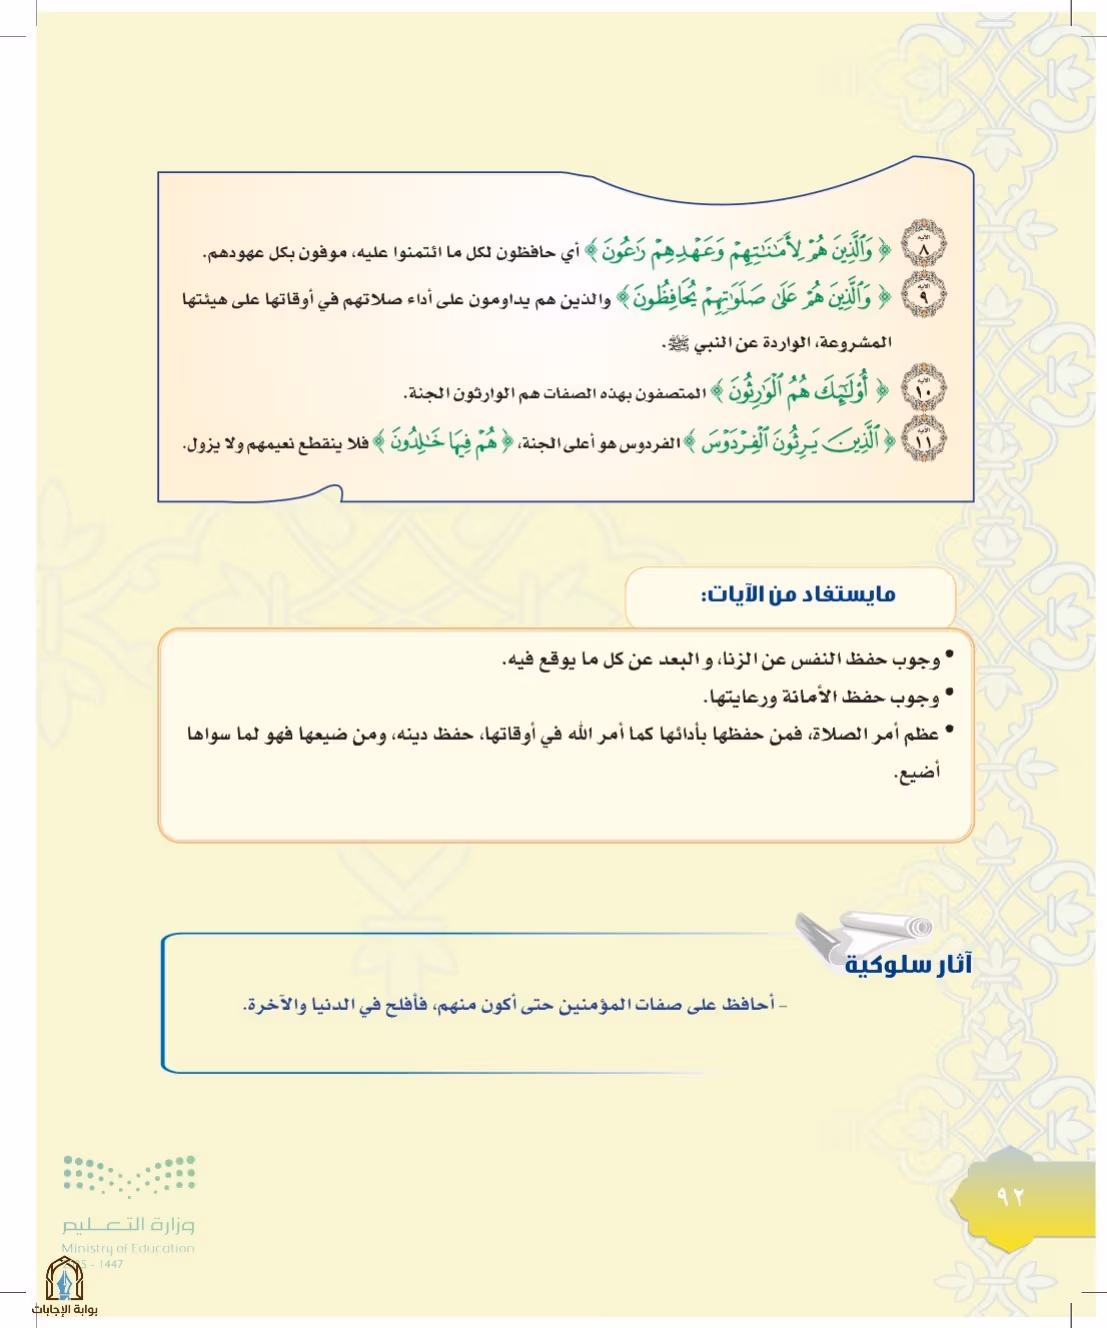 الآية ٨ ﴿ وَٱلَّذِينَ هُمْ لِأَمَـٰنَـٰتِهِمْ وَعَهْدِهِمْ رَٰعُونَ ﴾ أي حافظون لكل ما ائتمنوا عليه، موفون بكل عهودهم.
الآية ٩ ﴿ وَٱلَّذِينَ هُمْ عَلَىٰ صَلَوَٰتِهِمْ يُحَافِظُونَ ﴾ والذين هم يداومون على أداء صلاتهم في أوقاتها على هيئتها
المشروعة، الواردة عن النبي ﷺ.
الآية ١٠ ﴿ أُوْلَـٰٓئِكَ هُمُ ٱلْوَٰرِثُونَ ﴾ المتصفون بهذه الصفات هم الوارثون الجنة.
الآية ١١ ﴿ ٱلَّذِينَ يَرِثُونَ ٱلْفِرْدَوْسَ ﴾ الفردوس هو أعلى الجنة، ﴿ هُمْ فِيهَا خَـٰلِدُونَ ﴾ فلا ينقطع نعيمهم ولا يزول.
مايستفاد من الآيات:
• وجوب حفظ النفس عن الزنا، و البعد عن كل ما يوقع فيه.
• وجوب حفظ الأمانة ورعايتها.
• عظم أمر الصلاة، فمن حفظها بأدائها كما أمر الله في أوقاتها، حفظ دينه، ومن ضيعها فهو لما سواها
أضيع.
آثار سلوكية
- أحافظ على صفات المؤمنين حتى أكون منهم، فأفلح في الدنيا والآخرة.
٩٢
وزارة التعـــليم
Ministry of Education
5 - 1447
بوابة الإجابات